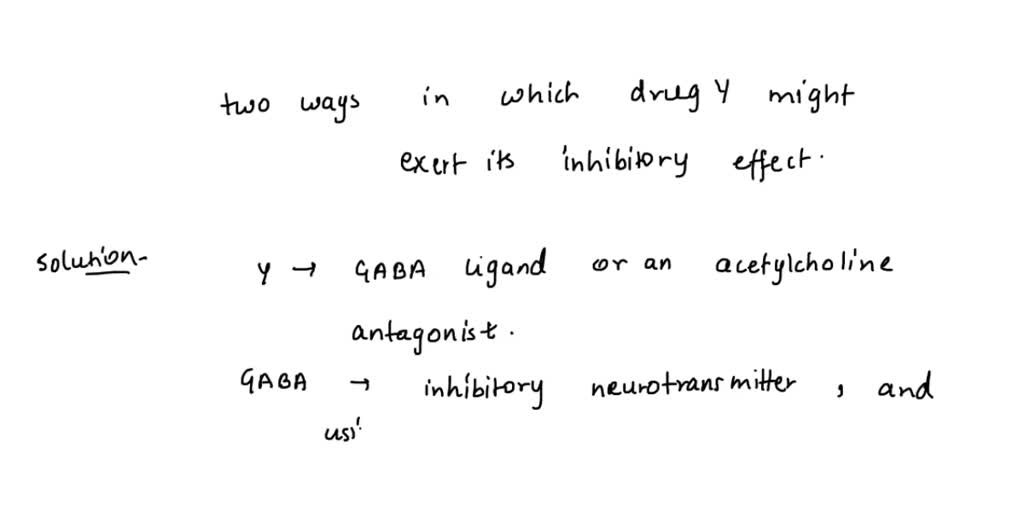 two ways in which drug Y might
exert its inhibitory effect.
Solution-
Y → GABA ligand or an acetylcholine
antagonist.
GABA → inhibitory neurotransmitter, and
usi